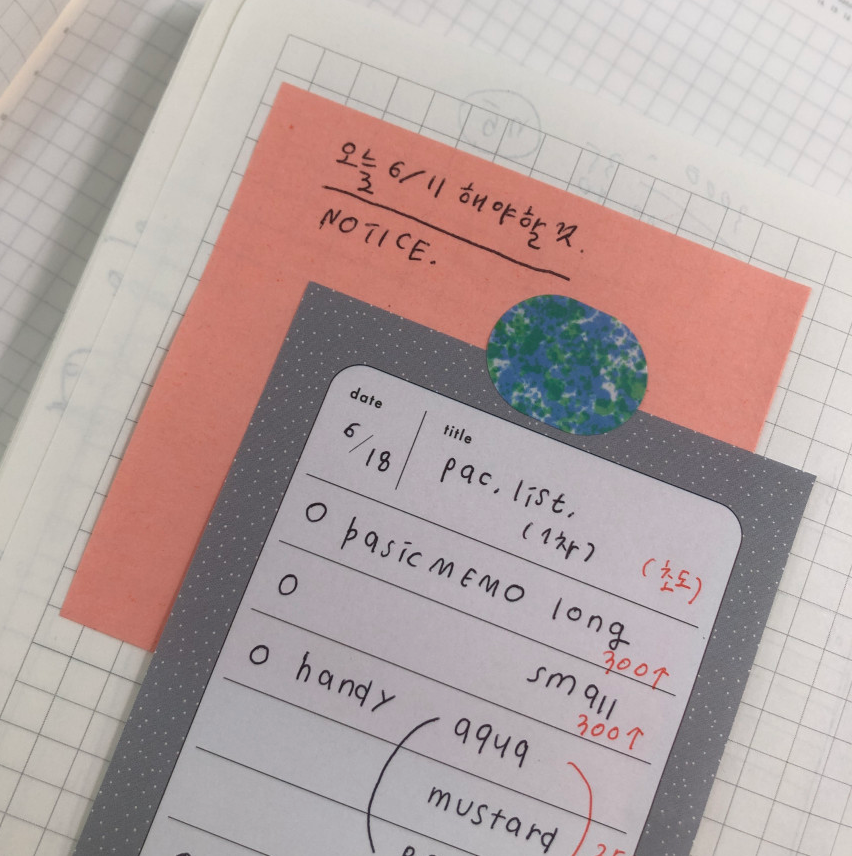 오늘 6/11 해야할 것.
NOTICE.
date
6/18
title
pac, list,
(1차)
(초도)
O basic MEMO long
300↑
O small
300↑
O handy ( aqua
mustard )